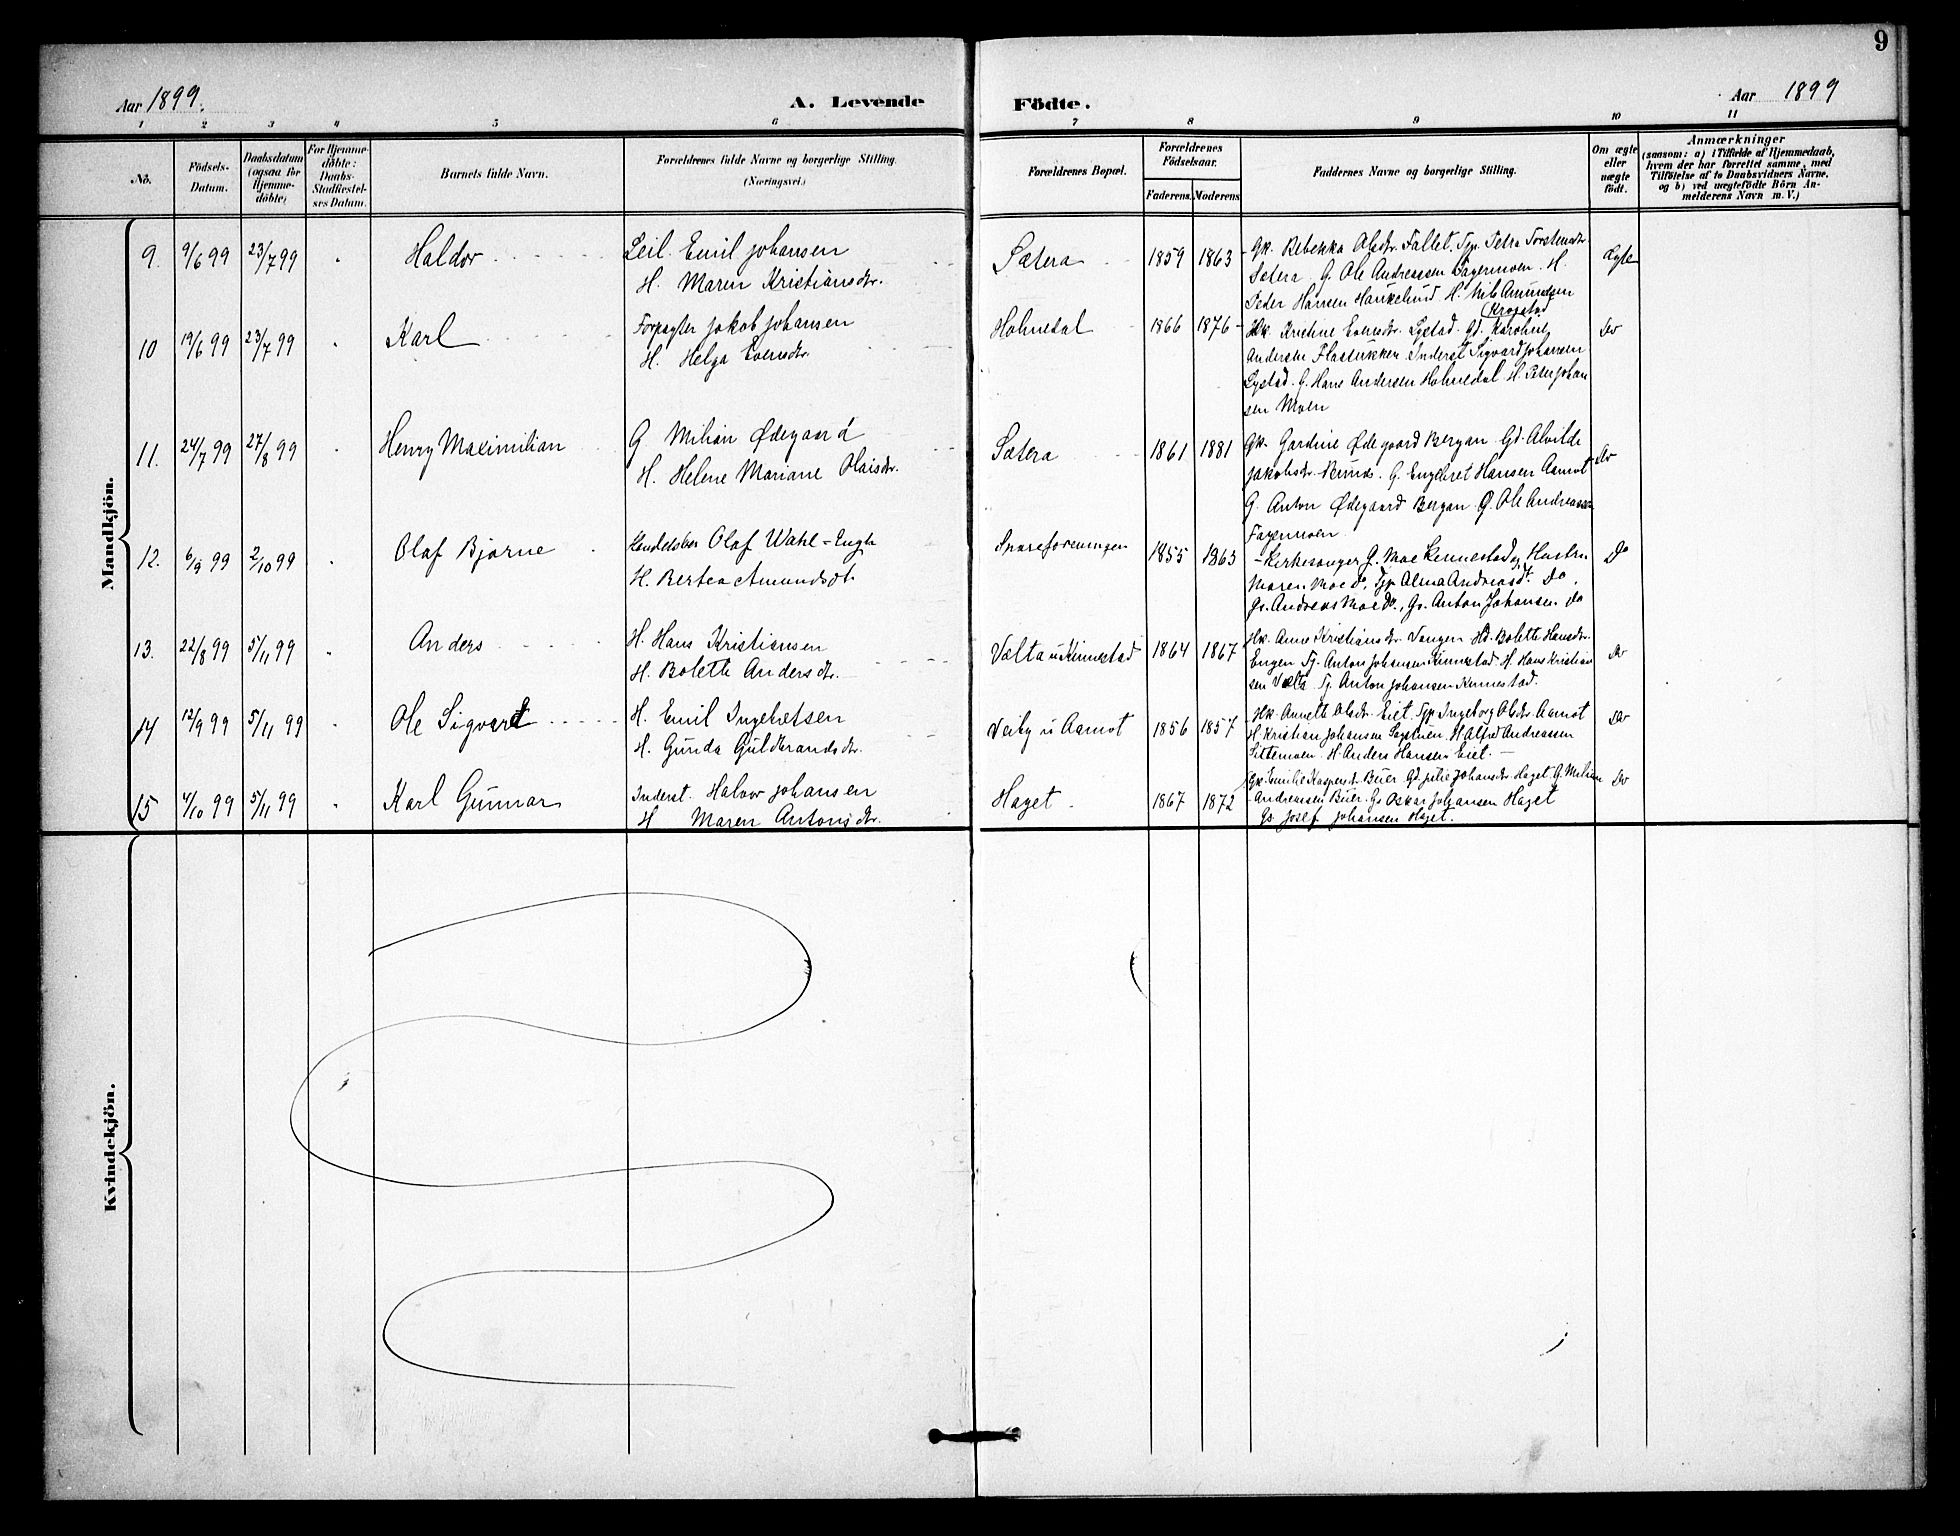 9
Aar 1899.
A. Levende
Födte.
Aar 1899
1 2 3 4 5 6 7 8 9 10 11
No.
Födsels-
Datum.
Daabsdatum
(ogsaa for
Hjemme-
döbte)
For Hjemme-
döbte:
Daabs-
Stadfæstel-
ses Datum.
Barnets fulde Navn.
Forældrenes fulde Navne og borgerlige Stilling.
(Næringsvei.)
Forældrenes Bopæl.
Forældrenes
Födselsaar.
Faderens.
Moderens.
Faddernes Navne og borgerlige Stilling.
Om ægte
eller
uægte
født.
Anmærkninger
(saasom: a) i Tilfælde af Hjemmedaab,
hvem der har forrettet samme, med
Tilföielse af to Daabsvidners Navne,
og b) ved uægtefödte Börn An-
melderens Navn m. V.)
Mandkjön.
9. 9/6 99 23/7 99 Haldor
Leil. Emil Johansen
H. Maren Kristiansdtr.
Sætera 1859 1863
Gk. Rebekka Olsdtr. Fallet. Tjp. Petra Torstensdtr.
Sætera. G. Ole Andreassen Fagermoen. H.
Peder Hansen Haukelund H. Nils Amundsen
Krogstad
Ægte
10 19/6 99 23/7 99 Karl
Forpagter Jakob Johansen
H. Helga Evensdtr.
Holmedal 1866 1876
Hk. Kristine Evensdtr. Lystad. Gd. Karoline
Andersen Flatlukken. Inderst Sigvard Johansen
Lystad. G. Hans Andersen Holmedal H. Peter Johan
sen Moen
Do
11. 24/7 99 27/8 99 Henry Maximilian
G. Milian Ødegaard
H. Helene Mariane Olaisdtr.
Sætera 1861 1881
Gk. Gardine Ødegaard Bergan. Gd. Alvilde
Jakobsdtr. G. Engebret Hansen Aamot
G. Anton Ødegaard Bergan. G. Ole Andreassen
Fagermoen
Do
12. 6/9 99 2/10 99 Olaf Bjarne
Handelsbes Olaf Wahl-Engh
H. Bertea Amundsdt.
Spareforeningen 1855 1863
Kirkesanger G. Moe Kinnestad og Hustru
Maren Moe Do, Tjp. Alma Andreasdt. Do.
Gs. Andreas Moe Do., Gs. Anton Johansen Do
Do
13. 22/8 99 5/11 99 Anders
H. Hans Kristiansen
H. Bolette Andersdtr.
Vælta u/Kinnestad 1864 1867
Hk. Anne Kristiansdtr. Vangen Hd. Bolette Hansdtr.
Engen Tj. Anton Johansen Kinnestad H. Hans Kristian
sen Vælta Tj. Anton Johansen Kinnestad.
Do
14 12/9 99 5/11 99 Ole Sigvart
H. Emil Ingebretsen
H. Gunda Guldbrandsdtr.
Veiby u/ Aamot 1856 1857
Hk. Annette Olsdtr. Eiet. Tjp Ingeborg Olsdtr. Aamot
H Kristian Johansen Sagstuen. H Alfred Andreassen
Sittemoen H Anders Hansen Eiet.
Do
15 4/10 99 5/11 99 Karl Gunnar
Inderst. Halvor Johansen
H Maren Antonsdtr.
Haget. 1867 1872
Gk. Emilie Kaspersdtr. Buer Gd. Julie Johansdtr. Haget. G. Milian
Andreassen Buer. Gs Oskar Johansen Haget
Gs. Josef Johansen Haget.
Do
Kvindekjön.